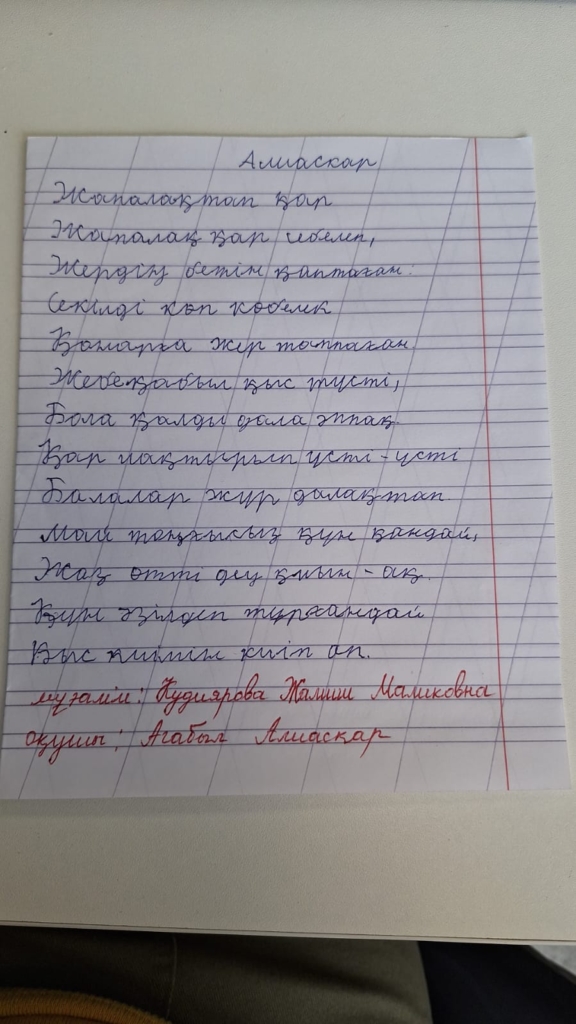 Алиасқар
Жапалақтап қар
Жапалақ қар себелеп,
Жердің бетін қаптаған.
Секілді көп көбелек
Қонарға жер таппаған.
Жебеқабыл қыс түсті,
Бола қалды дала аппақ.
Қар лақтырып үсті-үсті
Балалар жүр далақтап.
Май тоңғысыз күн қандай,
Жаз өтті деу қиын-ақ.
Күн әзілдеп тұрғандай
Қыс киімін киіп ап.
мұғалім: Кудиярова Маликовна
оқушы: Агабыл Алиасқар